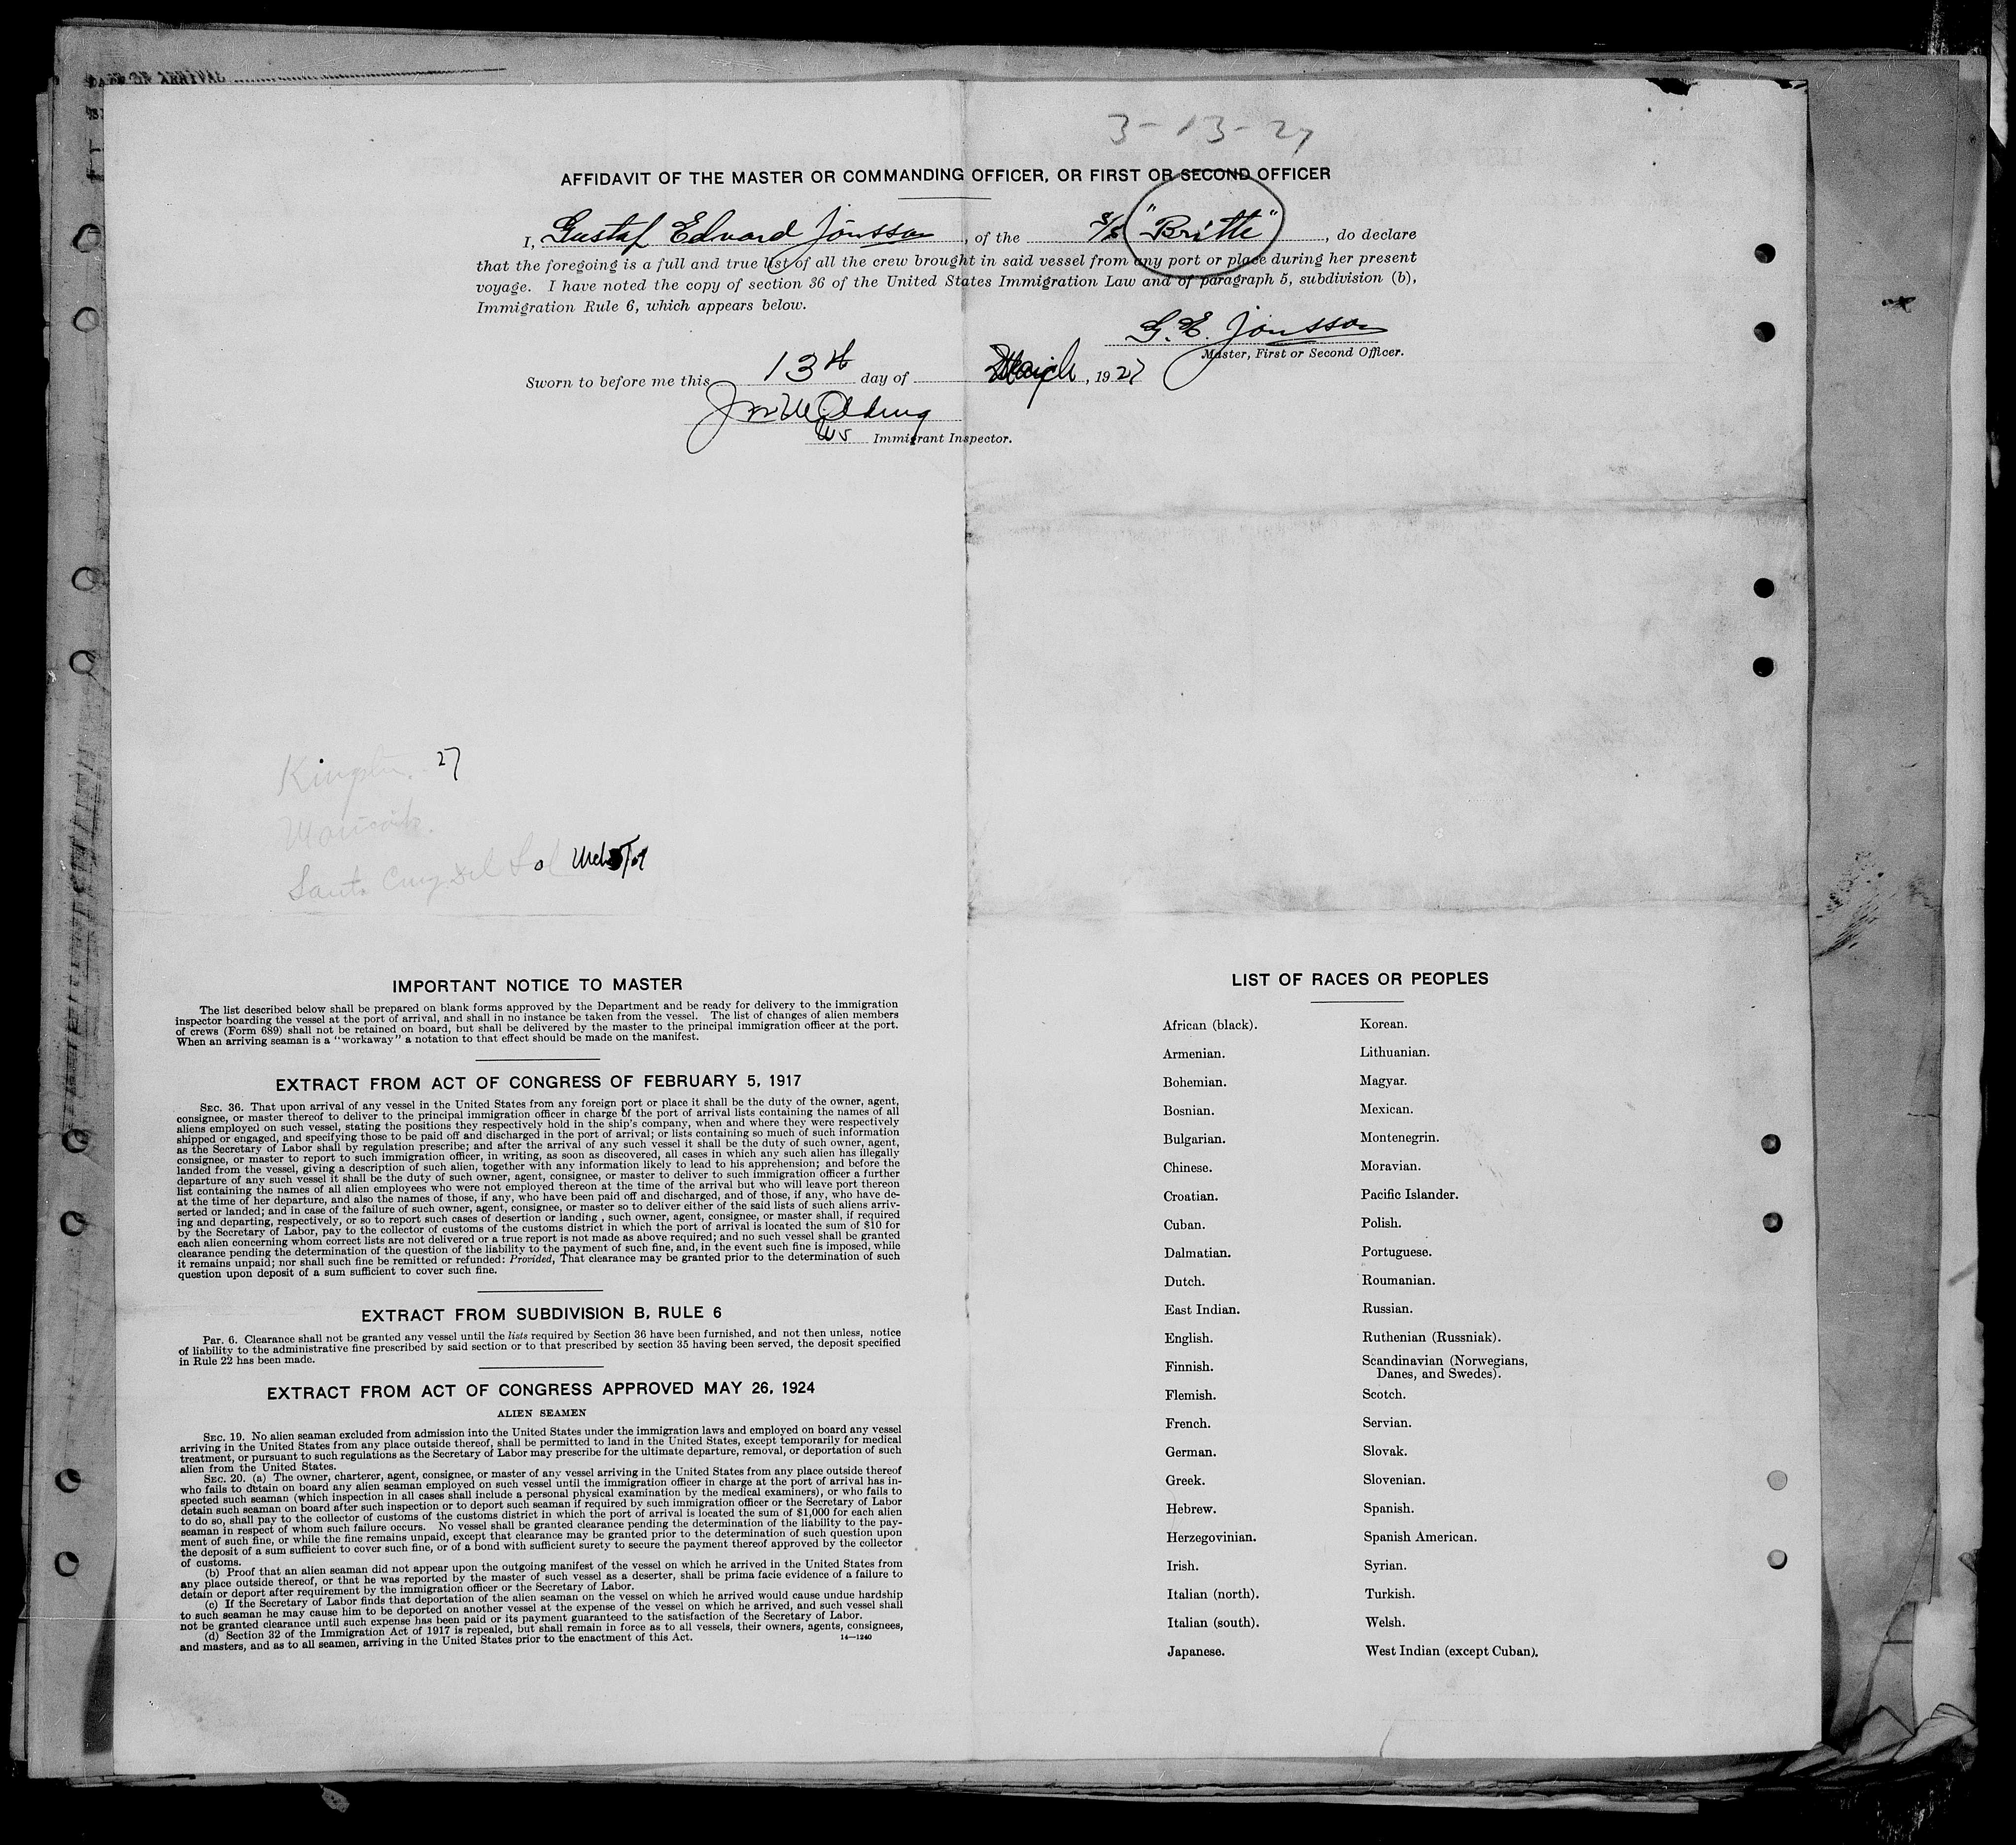 DATE OF ARRIVAL
3-13-27
AFFIDAVIT OF THE MASTER OR COMMANDING OFFICER, OR FIRST OR SECOND OFFICER
I, Gustaf Edvard Jönsson, of the S/S "Britte", do declare
that the foregoing is a full and true list of all the crew brought in said vessel from any port or place during her present
voyage. I have noted the copy of section 36 of the United States Immigration Law and of paragraph 5, subdivision (b),
Immigration Rule 6, which appears below.
G. E. Jönsson
Master, First or Second Officer.
Sworn to before me this 13th day of March, 1927
US Immigrant Inspector.
Kingston. 27
Santa Cruz del Sol
IMPORTANT NOTICE TO MASTER
The list described below shall be prepared on blank forms approved by the Department and be ready for delivery to the immigration
inspector boarding the vessel at the port of arrival, and shall in no instance be taken from the vessel. The list of changes of alien members
of crews (Form 689) shall not be retained on board, but shall be delivered by the master to the principal immigration officer at the port.
When an arriving seaman is a "workaway" a notation to that effect should be made on the manifest.
EXTRACT FROM ACT OF CONGRESS OF FEBRUARY 5, 1917
SEC. 36. That upon arrival of any vessel in the United States from any foreign port or place it shall be the duty of the owner, agent,
consignee, or master thereof to deliver to the principal immigration officer in charge of the port of arrival lists containing the names of all
aliens employed on such vessel, stating the positions they respectively hold in the ship's company, when and where they were respectively
shipped or engaged, and specifying those to be paid off and discharged in the port of arrival; or lists containing so much of such information
as the Secretary of Labor shall by regulation prescribe; and after the arrival of any such vessel it shall be the duty of such owner, agent,
consignee, or master to report to such immigration officer, in writing, as soon as discovered, all cases in which any such alien has illegally
landed from the vessel, giving a description of such alien, together with any information likely to lead to his apprehension; and before the
departure of any such vessel it shall be the duty of such owner, agent, consignee, or master to deliver to such immigration officer a further
list containing the names of all alien employees who were not employed thereon at the time of the arrival but who will leave port thereon
at the time of her departure, and also the names of those, if any, who have been paid off and discharged, and of those, if any, who have de-
serted or landed; and in case of the failure of such owner, agent, consignee, or master so to deliver either of the said lists of such aliens arriv-
ing and departing, respectively, or so to report such cases of desertion or landing , such owner, agent, consignee, or master shall, if required
by the Secretary of Labor, pay to the collector of customs of the customs district in which the port of arrival is located the sum of $10 for
each alien concerning whom correct lists are not delivered or a true report is not made as above required; and no such vessel shall be granted
clearance pending the determination of the question of the liability to the payment of such fine, and, in the event such fine is imposed, while
it remains unpaid; nor shall such fine be remitted or refunded: Provided, That clearance may be granted prior to the determination of such
question upon deposit of a sum sufficient to cover such fine.
EXTRACT FROM SUBDIVISION B, RULE 6
Par. 6. Clearance shall not be granted any vessel until the lists required by Section 36 have been furnished, and not then unless, notice
of liability to the administrative fine prescribed by said section or to that prescribed by section 35 having been served, the deposit specified
in Rule 22 has been made.
EXTRACT FROM ACT OF CONGRESS APPROVED MAY 26, 1924
ALIEN SEAMEN
SEC. 19. No alien seaman excluded from admission into the United States under the immigration laws and employed on board any vessel
arriving in the United States from any place outside thereof, shall be permitted to land in the United States, except temporarily for medical
treatment, or pursuant to such regulations as the Secretary of Labor may prescribe for the ultimate departure, removal, or deportation of such
alien from the United States.
SEC. 20. (a) The owner, charterer, agent, consignee, or master of any vessel arriving in the United States from any place outside thereof
who fails to detain on board any alien seaman employed on such vessel until the immigration officer in charge at the port of arrival has in-
spected such seaman (which inspection in all cases shall include a personal physical examination by the medical examiners), or who fails to
detain such seaman on board after such inspection or to deport such seaman if required by such immigration officer or the Secretary of Labor
to do so, shall pay to the collector of customs of the customs district in which the port of arrival is located the sum of $1,000 for each alien
seaman in respect of whom such failure occurs. No vessel shall be granted clearance pending the determination of the liability to the pay-
ment of such fine, or while the fine remains unpaid, except that clearance may be granted prior to the determination of such question upon
the deposit of a sum sufficient to cover such fine, or of a bond with sufficient surety to secure the payment thereof approved by the collector
of customs.
(b) Proof that an alien seaman did not appear upon the outgoing manifest of the vessel on which he arrived in the United States from
any place outside thereof, or that he was reported by the master of such vessel as a deserter, shall be prima facie evidence of a failure to
detain or deport after requirement by the immigration officer or the Secretary of Labor.
(c) If the Secretary of Labor finds that deportation of the alien seaman on the vessel on which he arrived would cause undue hardship
to such seaman he may cause him to be deported on another vessel at the expense of the vessel on which he arrived, and such vessel shall
not be granted clearance until such expense has been paid or its payment guaranteed to the satisfaction of the Secretary of Labor.
(d) Section 32 of the Immigration Act of 1917 is repealed, but shall remain in force as to all vessels, their owners, agents, consignees,
and masters, and as to all seamen, arriving in the United States prior to the enactment of this Act.
14—1240
LIST OF RACES OR PEOPLES
African (black).
Armenian.
Bohemian.
Bosnian.
Bulgarian.
Chinese.
Croatian.
Cuban.
Dalmatian.
Dutch.
East Indian.
English.
Finnish.
Flemish.
French.
German.
Greek.
Hebrew.
Herzegovinian.
Irish.
Italian (north).
Italian (south).
Japanese.
Korean.
Lithuanian.
Magyar.
Mexican.
Montenegrin.
Moravian.
Pacific Islander.
Polish.
Portuguese.
Roumanian.
Russian.
Ruthenian (Russniak).
Scandinavian (Norwegians,
Danes, and Swedes).
Scotch.
Servian.
Slovak.
Slovenian.
Spanish.
Spanish American.
Syrian.
Turkish.
Welsh.
West Indian (except Cuban).